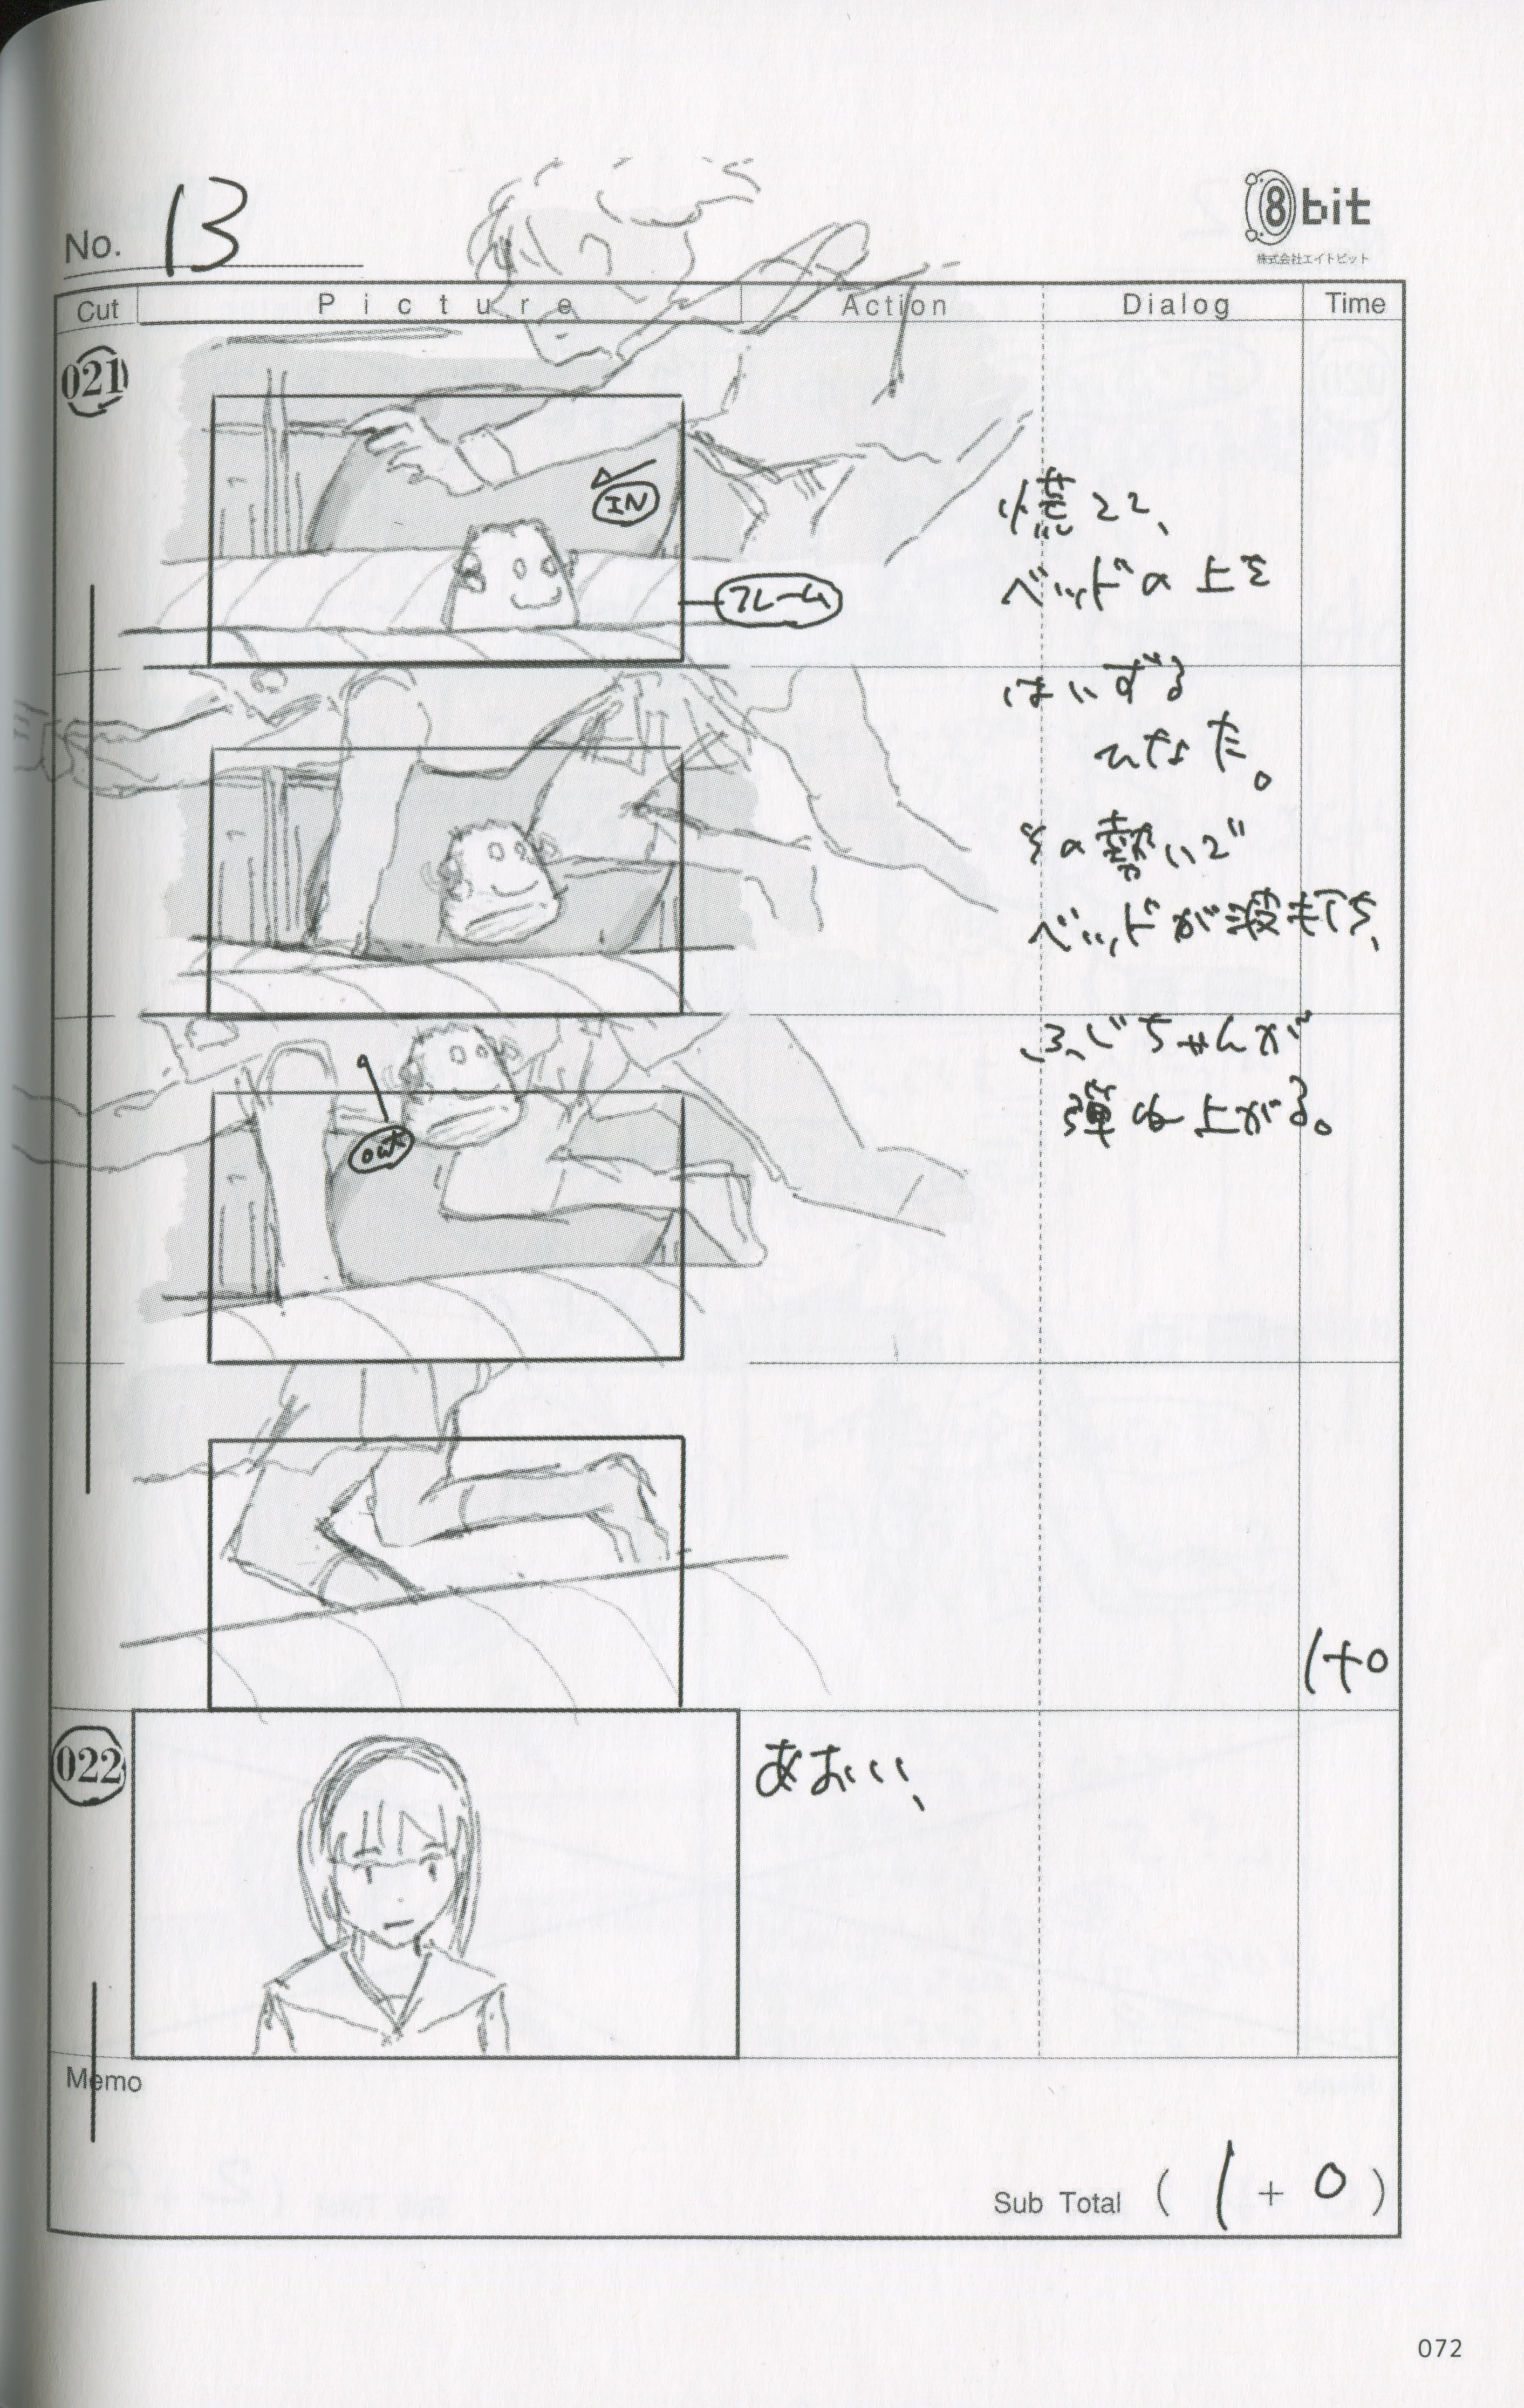 No. 13
8bit
株式会社エイトビット
Cut Picture Action Dialog Time
021
IN
フレーム
慌てて、
ベッドの上を
はいずる
ひなた。
その勢いで
ベッドが波打ち、
OUT
ふじちゃんが
弾ね上がる。
1+0
022
あおい、
Memo
Sub Total ( 1 + 0 )
072